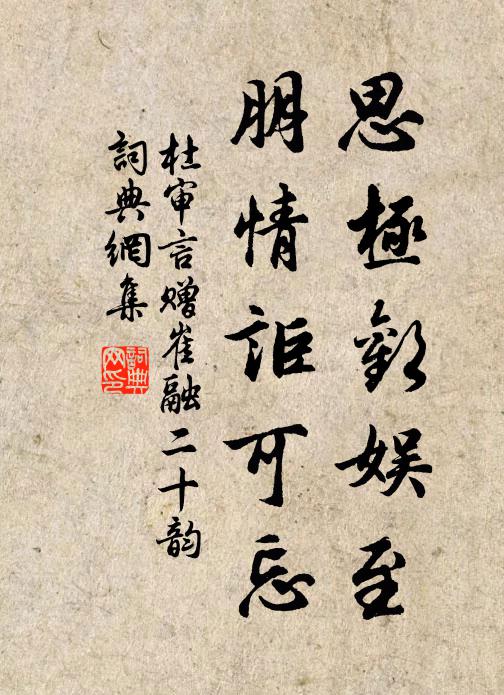 思極歡娛至
朋情詎可忘
杜审言赠崔融二十韵
詞典網集
詞典网印